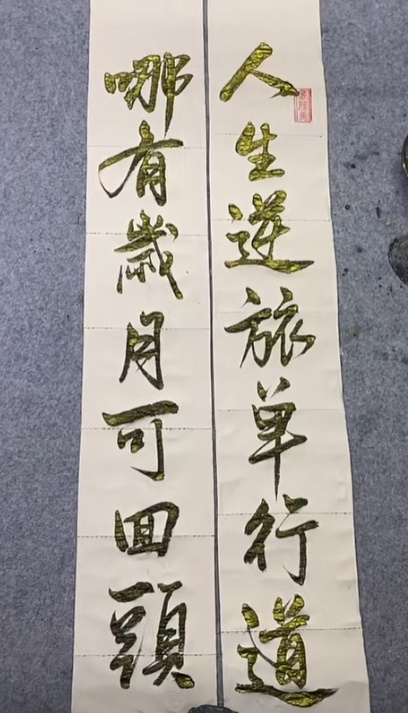 人生逆旅単行道
哪有歲月可回頭